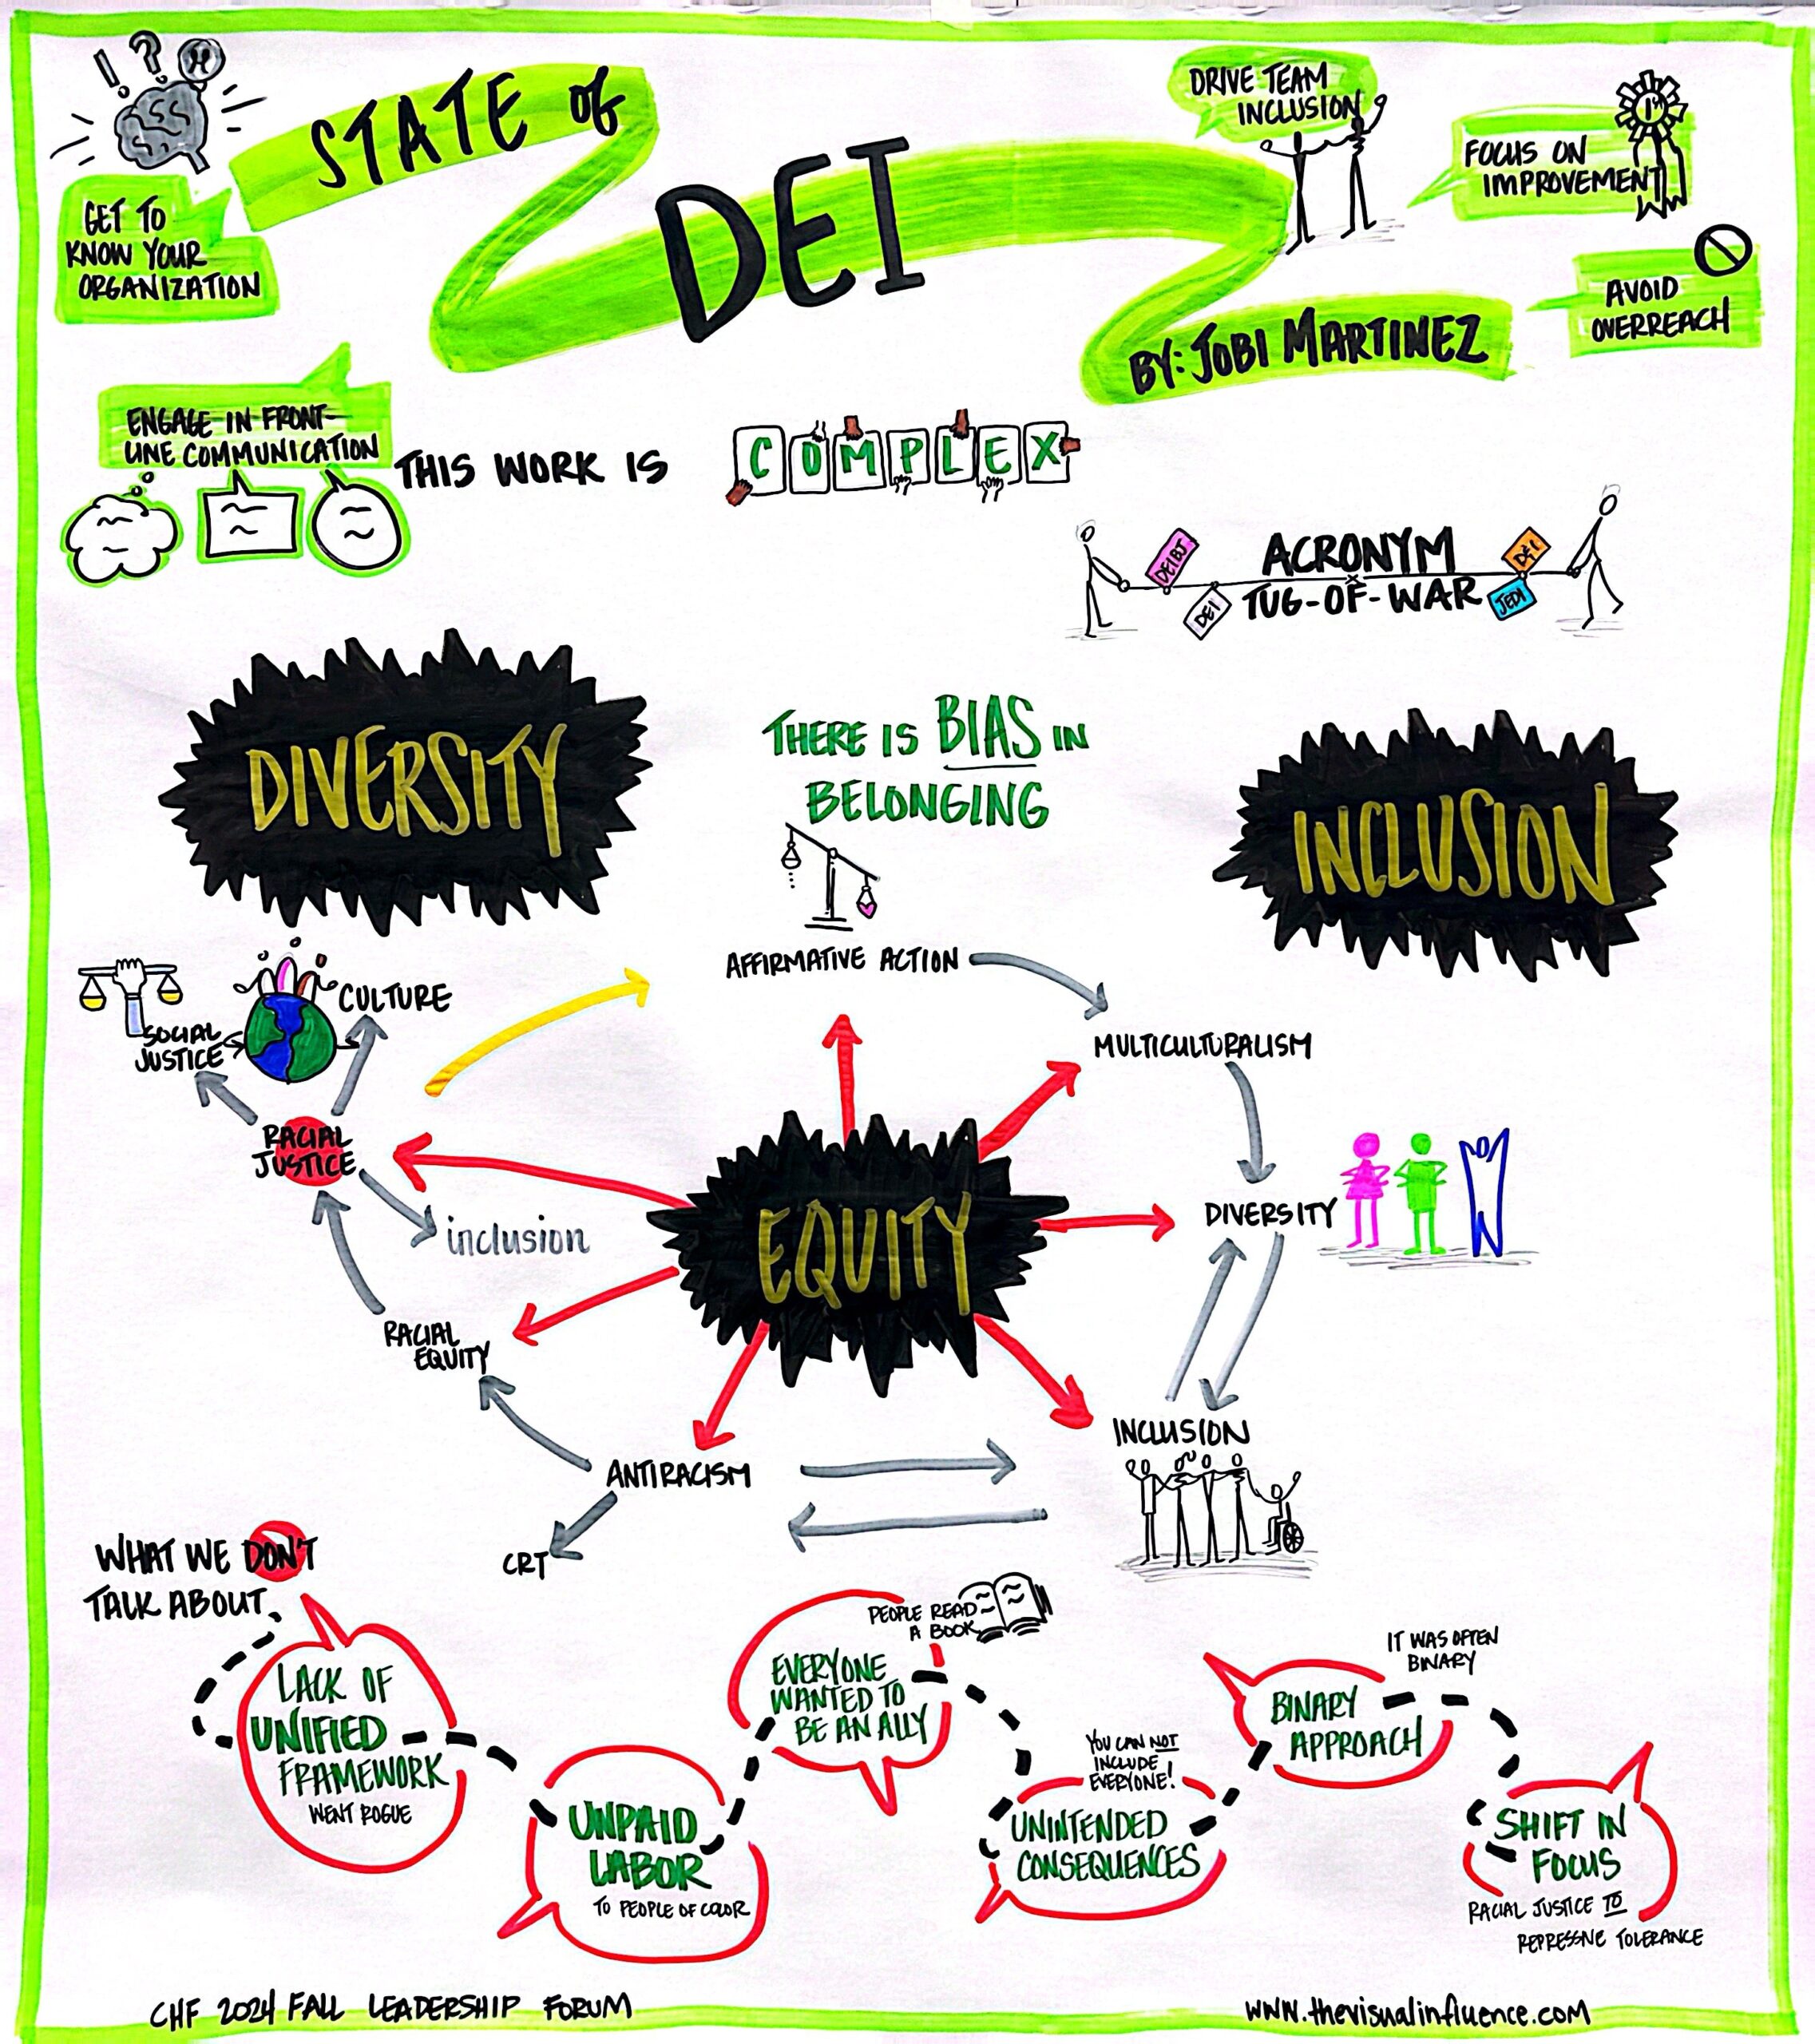 ! ? H
STATE OF
DEI
BY: JOBI MARTINEZ
GET TO
KNOW YOUR
ORGANIZATION
DRIVE TEAM
INCLUSION
FOCUS ON
IMPROVEMENT
1st
AVOID
OVERREACH
ENGAGE IN FRONT-
LINE COMMUNICATION
THIS WORK IS COMPLEX
ACRONYM
TUG-OF-WAR
DEIBJ
DEI
DEI
JEDI
DIVERSITY
THERE IS BIAS IN
BELONGING
INCLUSION
AFFIRMATIVE ACTION
MULTICULTURALISM
DIVERSITY
INCLUSION
ANTIRACISM
CRT
RACIAL
EQUITY
RACIAL
JUSTICE
inclusion
SOCIAL
JUSTICE
CULTURE
EQUITY
WHAT WE DON'T
TALK ABOUT
LACK OF
UNIFIED
FRAMEWORK
WENT ROGUE
UNPAID
LABOR
TO PEOPLE OF COLOR
PEOPLE READ
A BOOK
EVERYONE
WANTED TO
BE AN ALLY
YOU CAN NOT
INCLUDE
EVERYONE!
UNINTENDED
CONSEQUENCES
IT WAS OFTEN
BINARY
BINARY
APPROACH
SHIFT IN
FOCUS
RACIAL JUSTICE TO
REPRESSIVE TOLERANCE
CHF 2024 FALL LEADERSHIP FORUM
www.thevisualinfluence.com